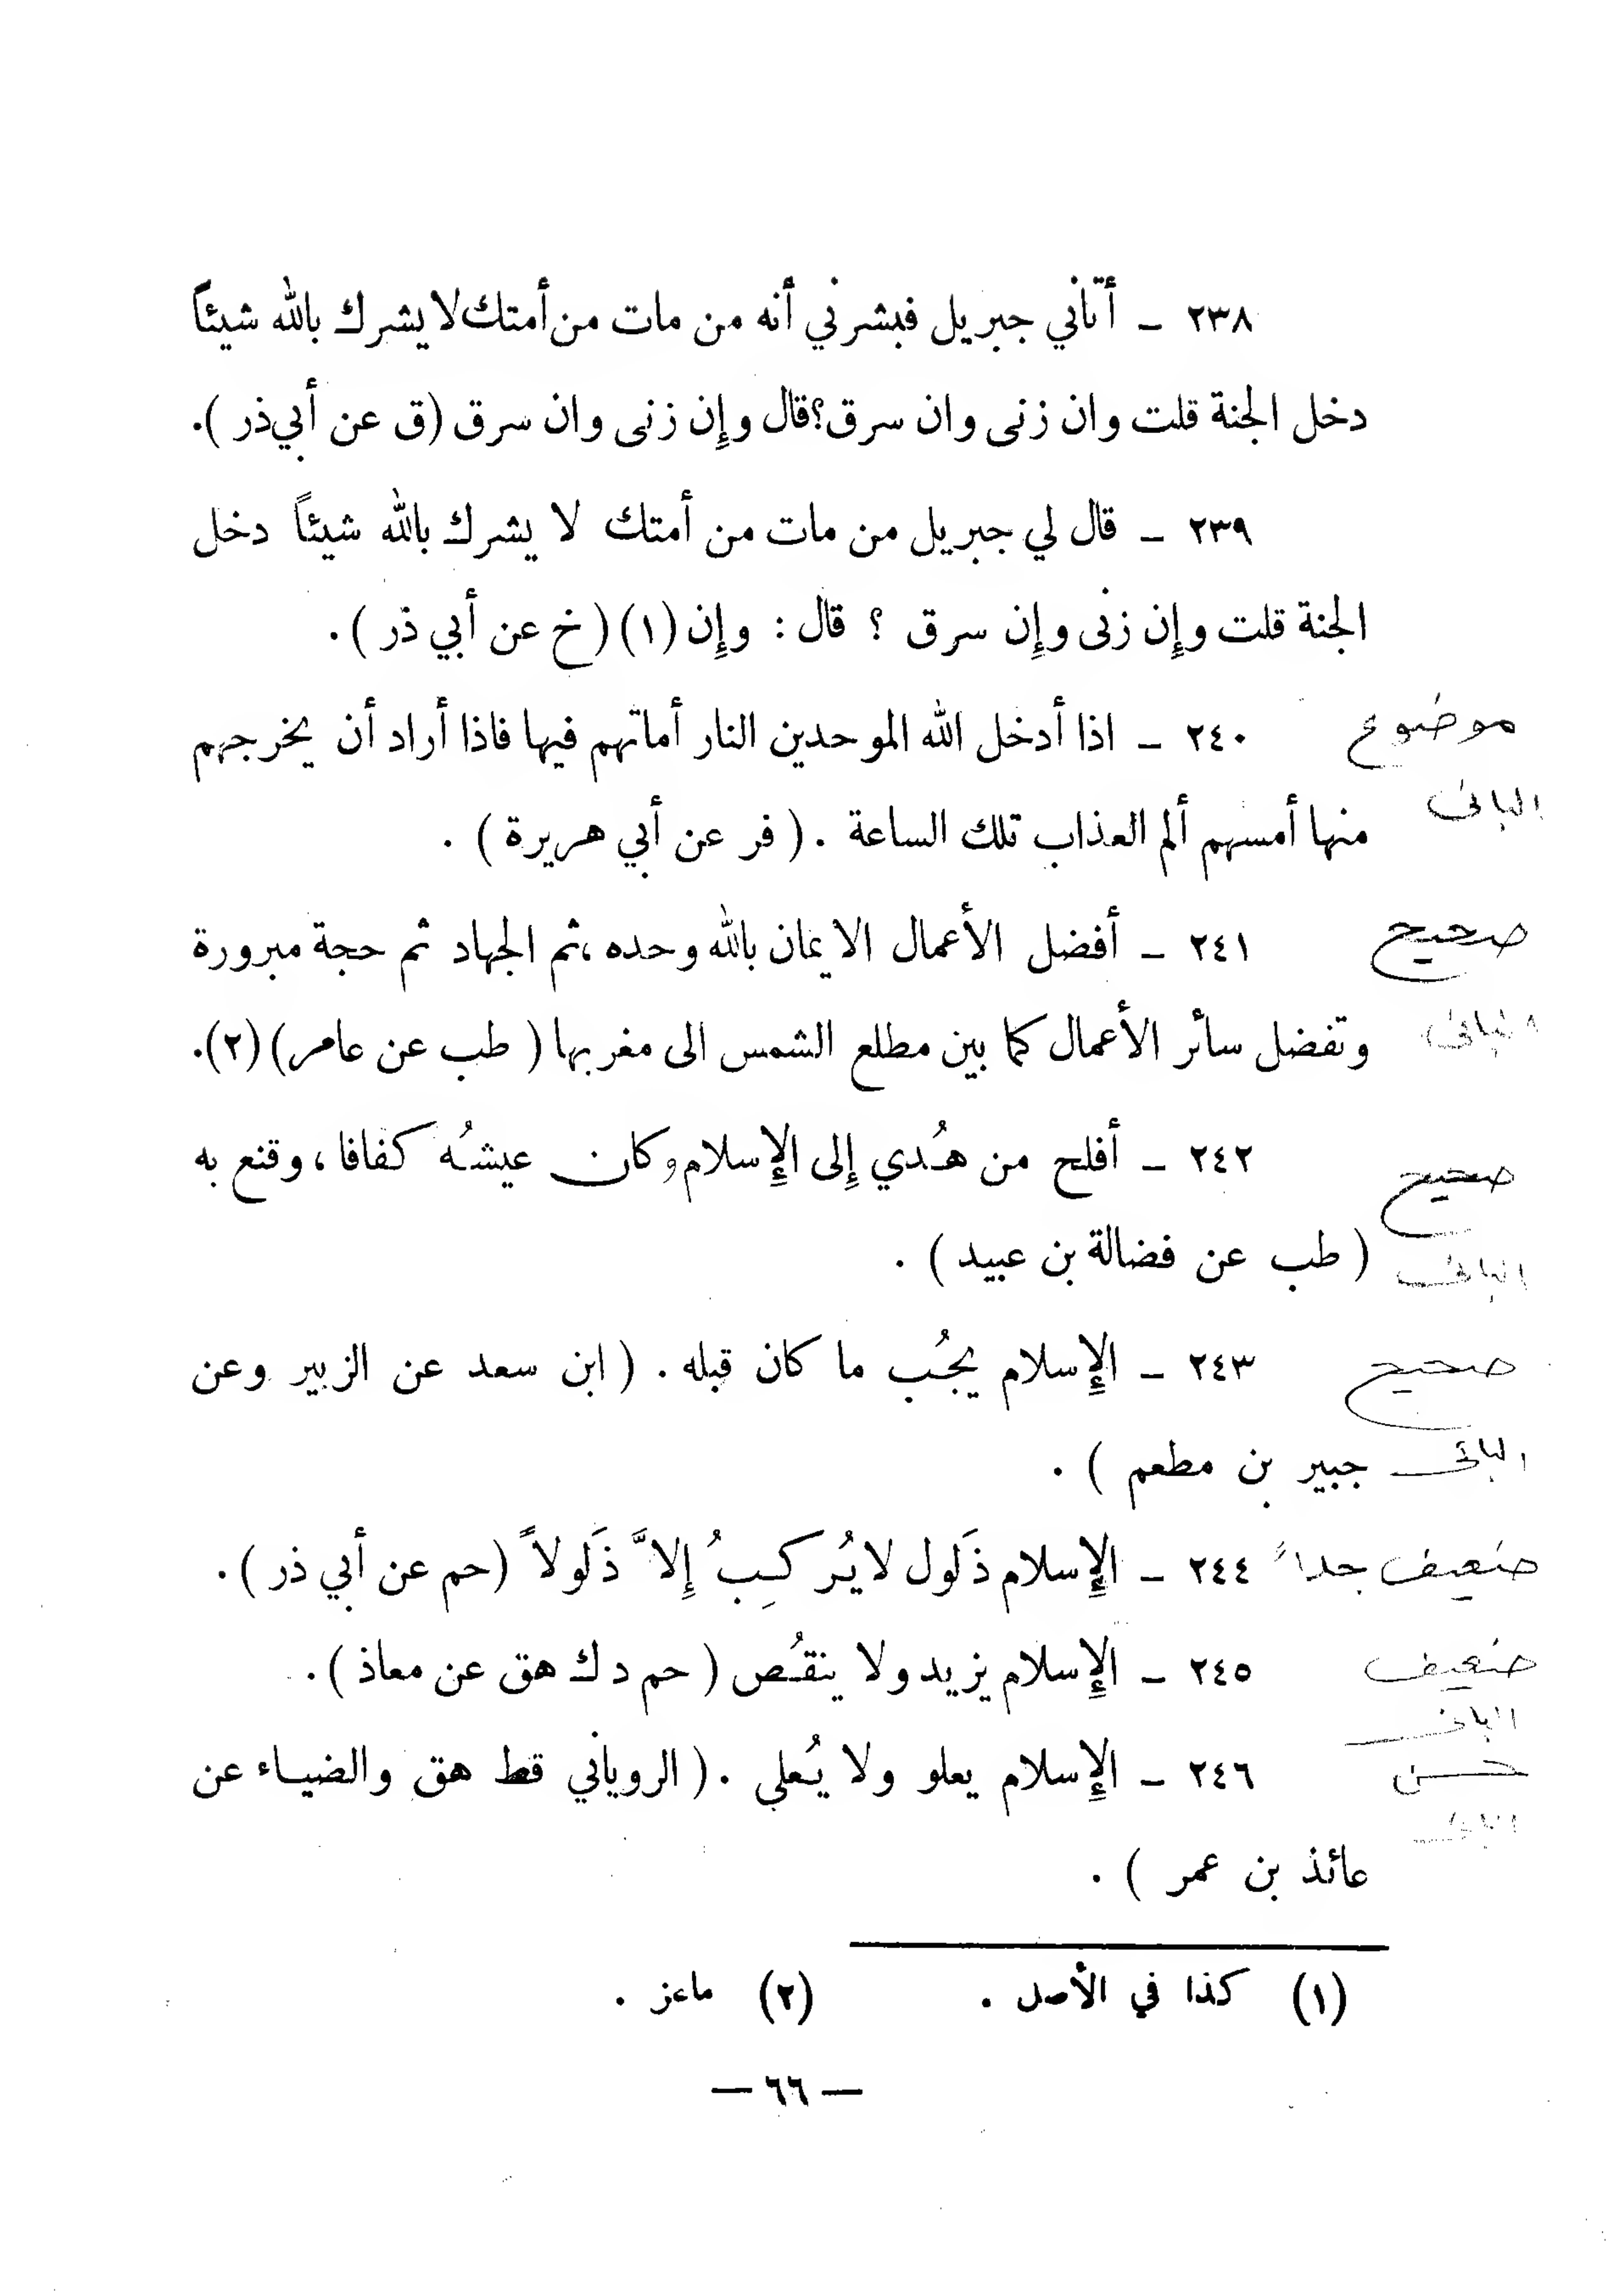 ٢٣٨ ـ أتاني جبريل فبشرني أنه من مات من أمتك لا يشرك بالله شيئاً
دخل الجنة قلت وان زنى وان سرق؟ قال وإن زنى وان سرق (ق عن أبي ذر ).
٢٣٩ ـ قال لي جبريل من مات من أمتك لا يشرك بالله شيئاً دخل
الجنة قلت وإن زنى وإن سرق ؟ قال : وإن (١) (خ عن أبي ذر ).
موضوع ٢٤٠ ـ اذا أدخل الله الموحدين النار أماتهم فيها فاذا أراد أن يخرجهم
البانى منها أمسهم ألم العذاب تلك الساعة . ( فر عن أبي هريرة ) .
صحيح ٢٤١ ـ أفضل الأعمال الايمان بالله وحده ، ثم الجهاد ثم حجة مبرورة
البانى وتفضل سائر الأعمال كما بين مطلع الشمس الى مغربها ( طب عن عامر) (٢).
صحيح ٢٤٢ ـ أفلح من هُدي إلى الإسلام وكان عيشُه كفافا ، وقنع به
البانى ( طب عن فضالة بن عبيد ) .
صحيح ٢٤٣ ـ الإسلام يجُب ما كان قبله . ( ابن سعد عن الزبير وعن
البانى جبير بن مطعم ) .
ضعيف جداً ٢٤٤ ـ الإسلام ذَلول لا يُركِبُ إلاَّ ذَلولاً (حم عن أبي ذر ) .
ضعيف ٢٤٥ ـ الإسلام يزيد ولا ينقُص ( حم د ك هق عن معاذ ) .
البانى
حسن ٢٤٦ ـ الإسلام يعلو ولا يُعلي . ( الروياني قط هق والضياء عن
البانى
عائذ بن عمر ) .
(١) كذا في الأصل . (٢) ماعز .
— ٦٦ —